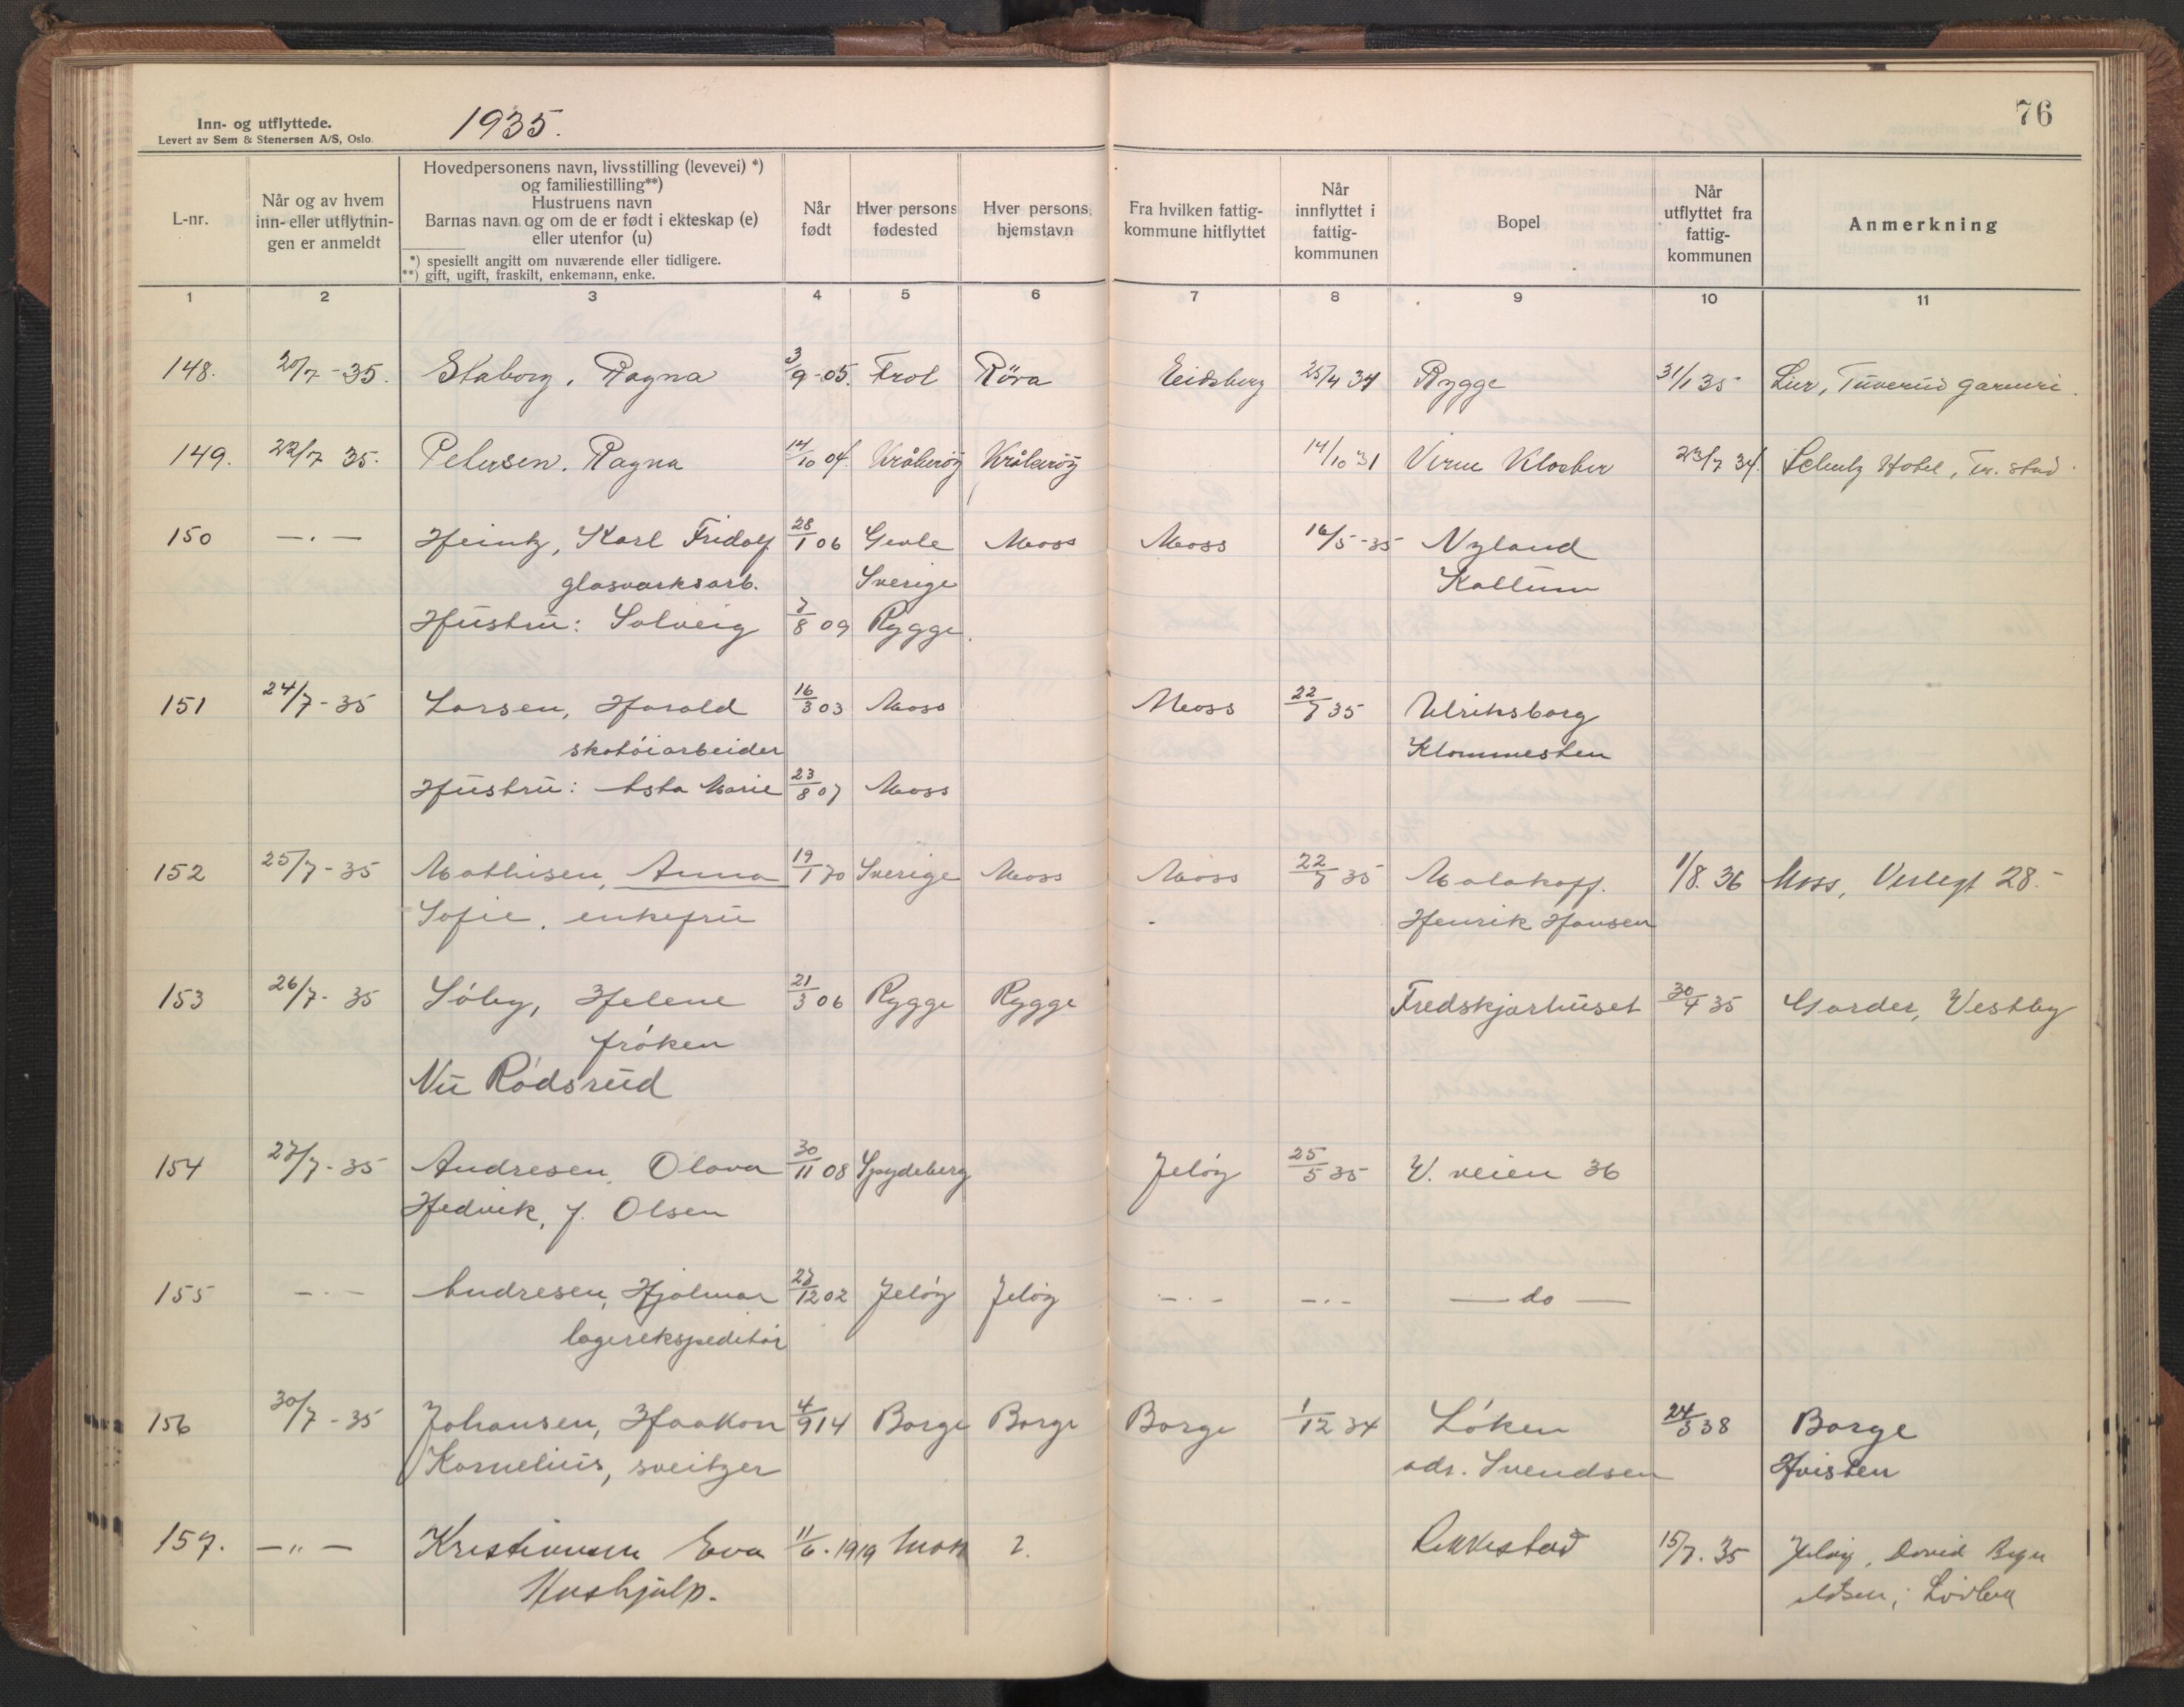 Inn- og utflyttede.
Levert av Sem & Stenersen A/S, Oslo.
1935.
76
L-nr.
Når og av hvem
inn- eller utflytnin-
gen er anmeldt
Hovedpersonens navn, livsstilling (levevei) *)
og familiestilling**)
Hustruens navn
Barnas navn og om de er født i ekteskap (e)
eller utenfor (u)
*) spesiellt angitt om nuværende eller tidligere.
**) gift, ugift, fraskilt, enkemann, enke.
Når
født
Hver persons
fødested
Hver persons
hjemstavn
Fra hvilken fattig-
kommune hitflyttet
Når
innflyttet i
fattig-
kommunen
Bopel
Når
utflyttet fra
fattig-
kommunen
Anmerkning
1 2 3 4 5 6 7 8 9 10 11
148. 20/7-35. Skaborg, Ragna 3/9-05. Frol Röra Eidsberg 25/4 34 Rygge 31/1 35 Lier, Tuverud garneri.
149. 22/7 35. Petersen, Ragna 14/10 04. Kråkeröy Kråkeröy 14/10 31 Virne Kloster 23/7 34. Schulz Hotel, Fr. stad.
150 -.- Heintz, Karl Fridolf 28/1 06 Gevle Moss Moss 16/5-35 Nyland
glasverksarb. Sverige Kallum
Hustru: Solveig 7/8 09 Rygge.
151 24/7-35 Larsen, Harald 16/3 03 Moss Moss 22/7 35 Ulriksborg
skotöiarbeider Klommesten
Hustru: Asta Marie 23/8 07 Moss
152 25/7-35 Mathisen, Anna 19/1 70 Sverige Moss Moss 22/7 35 Malakoff. 1/8. 36 Moss, Verlegt 28.-
Sofie, enkefru - Henrik Hansen
153 26/7- 35 Söby, Helene 21/3 06 Rygge Rygge Fredskjærhuset 30/4 35 Garder, Vestby
fröken
Nu Rödsrud
154 27/7-35 Andresen, Olava 30/11 08 Spydeberg Jelöy 25/5 35 V. veien 36
Hedvik, f. Olsen
155 -.- Andresen, Hjalmar 27/12 02 Jelöy Jelöy -.- -.- — do —
lagerekspeditör
156 30/7-35 Johansen, Haakon 4/9 14 Borge Borge Borge 1/12 34 Löken 24/3 38 Borge
Kornelius, sveitzer adr. Svendsen Hvisten
157. -"- Kristiansen Eva 11/6. 1919 Moss ?. Rakkestad 15/7. 35 Jelöy, David
Hushjelp.